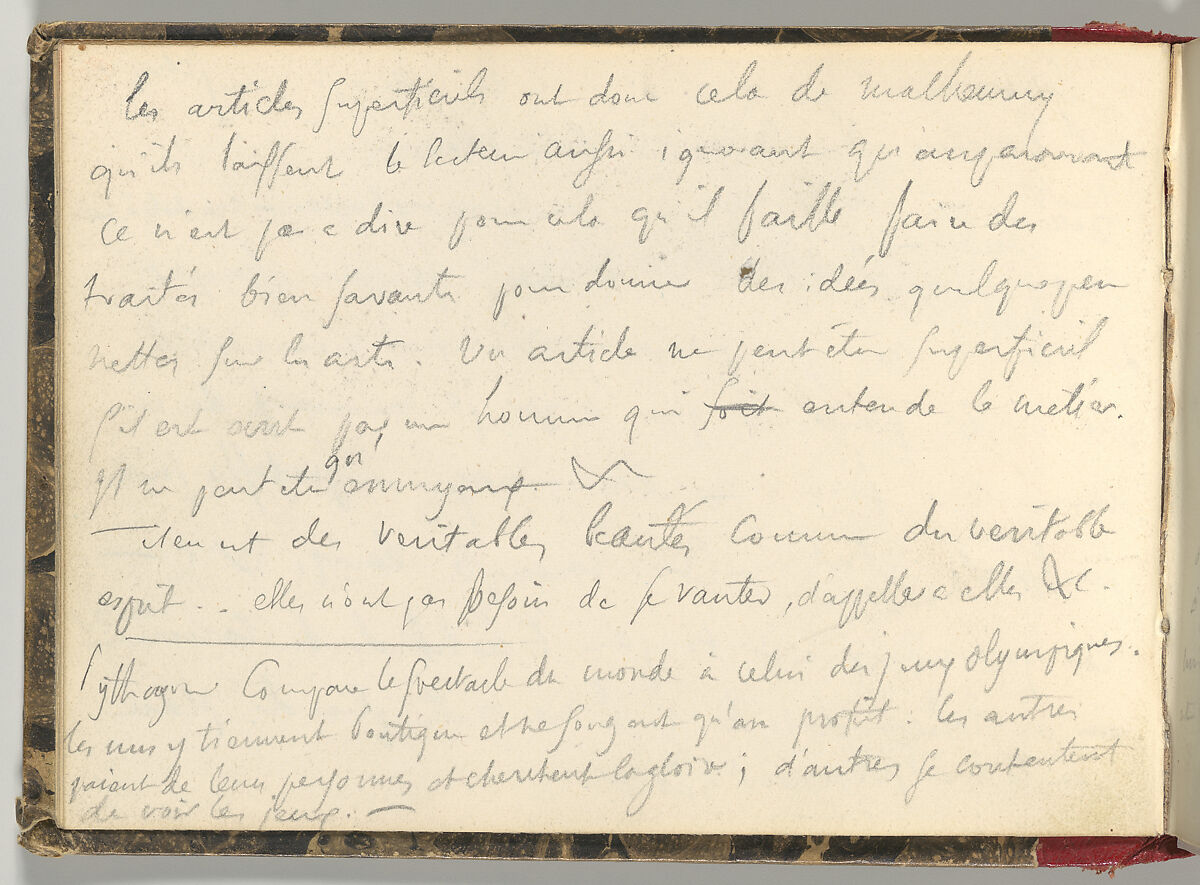 les articles superficiels ont donc cela de malheureux
qu'ils laissent le lecteur aussi ignorant qu'auparavant
ce n'est pas a dire pour cela qu'il faille faire des
traités bien savants pour donner des idées quelque peu
nettes sur les arts. Un article ne peut être superficiel
s'il est ecrit par un homme qui soit entende le métier.
Il ne peut etre qu'ennuyeux
des veritables beautés comme du veritable
esprit .. elles n'ont pas besoin de se vanter, d'appeller a elles &c.
Pythagore compare le spectacle du monde à celui des jeux olympiques.
les uns y tiennent boutique et ne songent qu'au profit. les autres
paient de leurs personnes et cherchent la gloire ; d'autres se contentent
de voir les jeux. —